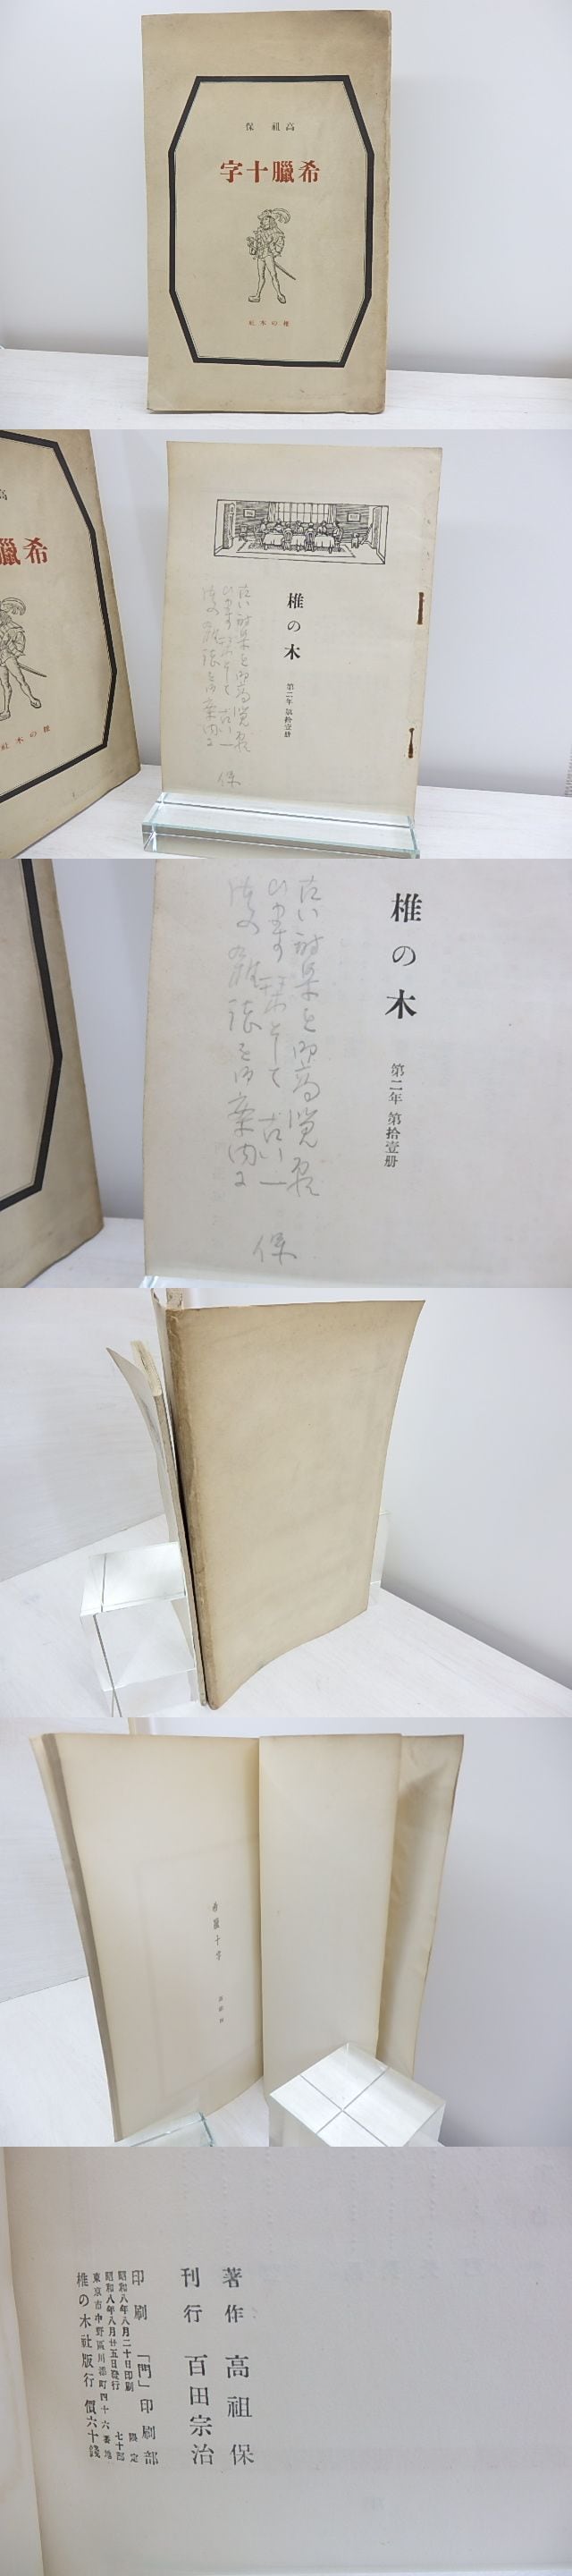 高祖保
希臘十字
椎の木社
高
希臘
椎の木社
椎の木
第二年 第拾壹册
古い詩集を御高覧に
ひ
古い一
御案内に
保
椎の木
第二年 第拾壹册
古い詩集を御高覧
として 古い一
を御案内に
保
希臘十字
高祖保
著作 高祖保
刊行 百田宗治
印刷 「門」印刷部
昭和八年八月二十日印刷 限定
昭和八年八月廿五日發行 七十部
東京市中野區川添町四十六番地
椎の木社版行 價六十錢